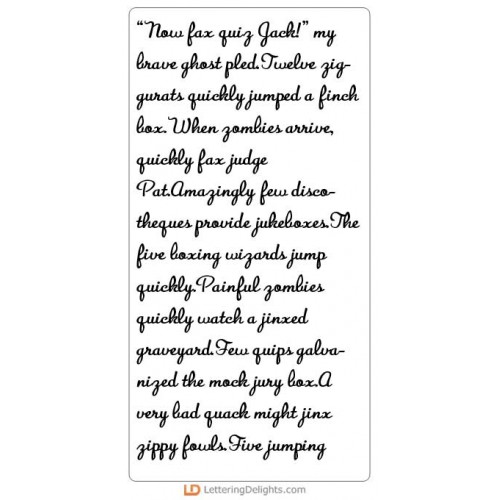 “Now fax quiz Jack!” my
brave ghost pled.Twelve zig-
gurats quickly jumped a finch
box.When zombies arrive,
quickly fax judge
Pat.Amazingly few disco-
theques provide jukeboxes.The
five boxing wizards jump
quickly.Painful zombies
quickly watch a jinxed
graveyard.Few quips galva-
nized the mock jury box.A
very bad quack might jinx
zippy fowls.Five jumping
LD LetteringDelights.com